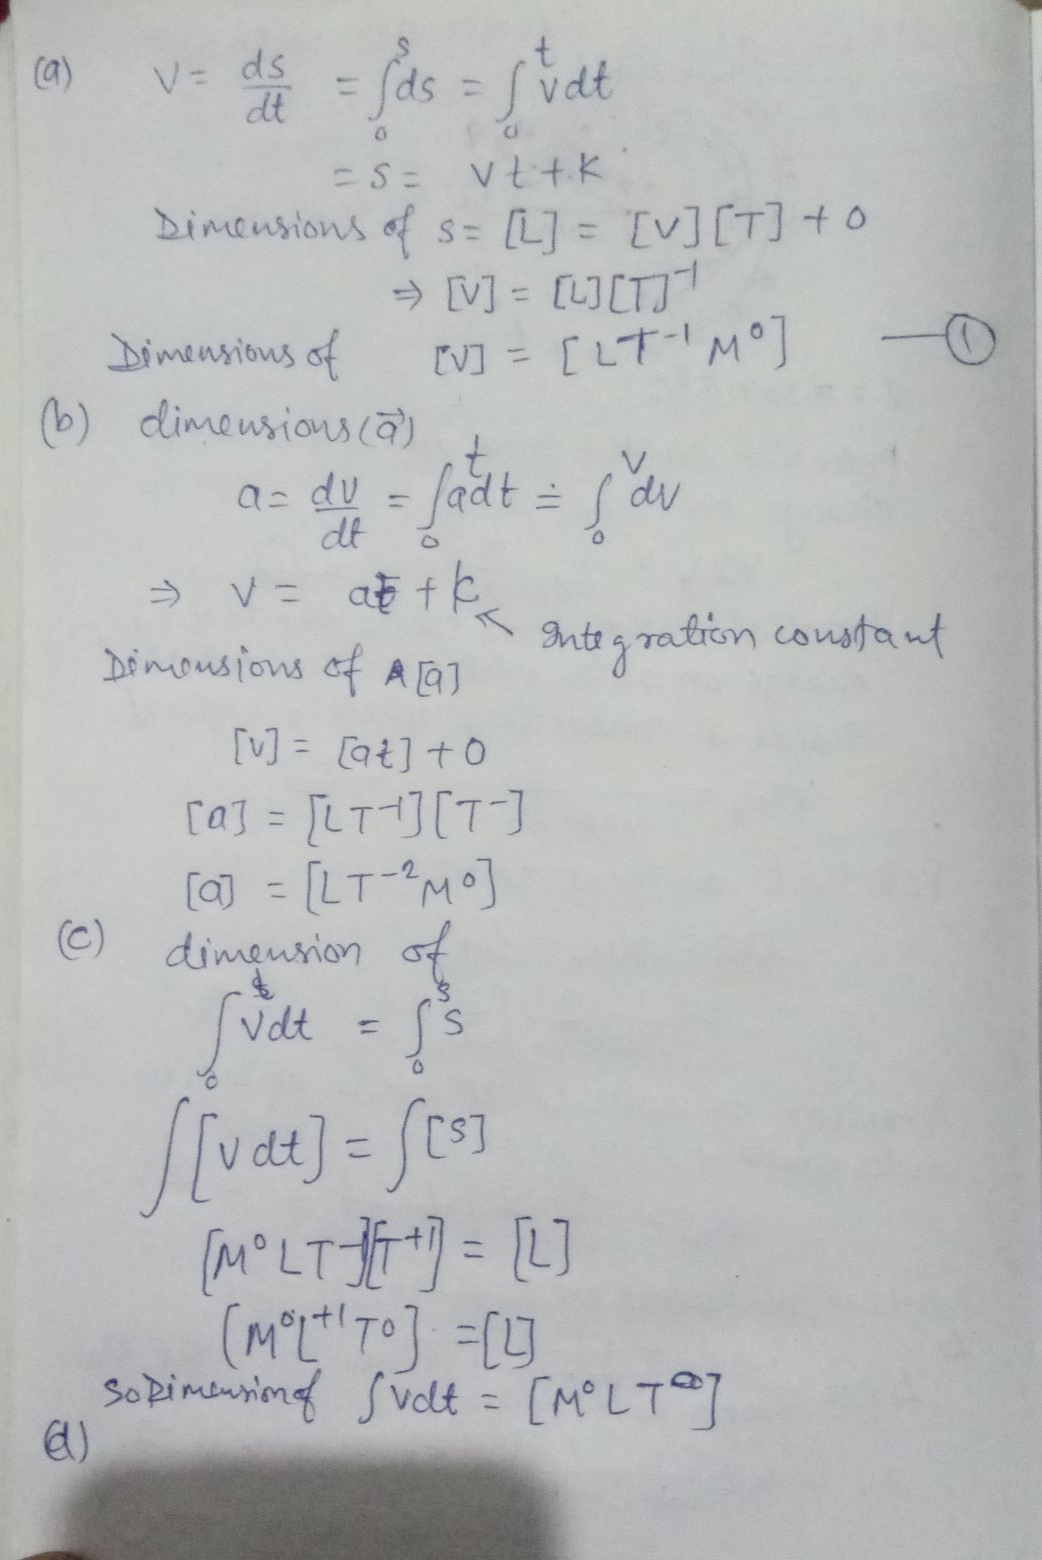 (a) V = ds/dt = ∫₀ˢ ds = ∫₀ᵗ vdt
= S = vt + k
Dimensions of s = [L] = [V][T] + 0
⇒ [V] = [L][T]⁻¹
Dimensions of [V] = [LT⁻¹M⁰] —①
(b) dimensions (a⃗)
a = dv/dt = ∫₀ᵗ adt = ∫₀ⱽ dv
⇒ V = at + k
Integration constant
Dimensions of A [a]
[v] = [at] + 0
[a] = [LT⁻¹][T⁻]
[a] = [LT⁻²M⁰]
(c) dimension of
∫₀ᵗ vdt = ∫₀ˢ S
∫[vdt] = ∫[s]
[M⁰LT⁻¹][T⁺¹] = [L]
[M⁰L⁺¹T⁰] = [L]
So Dimension of ∫vdt = [M⁰LT⁰]
(d)